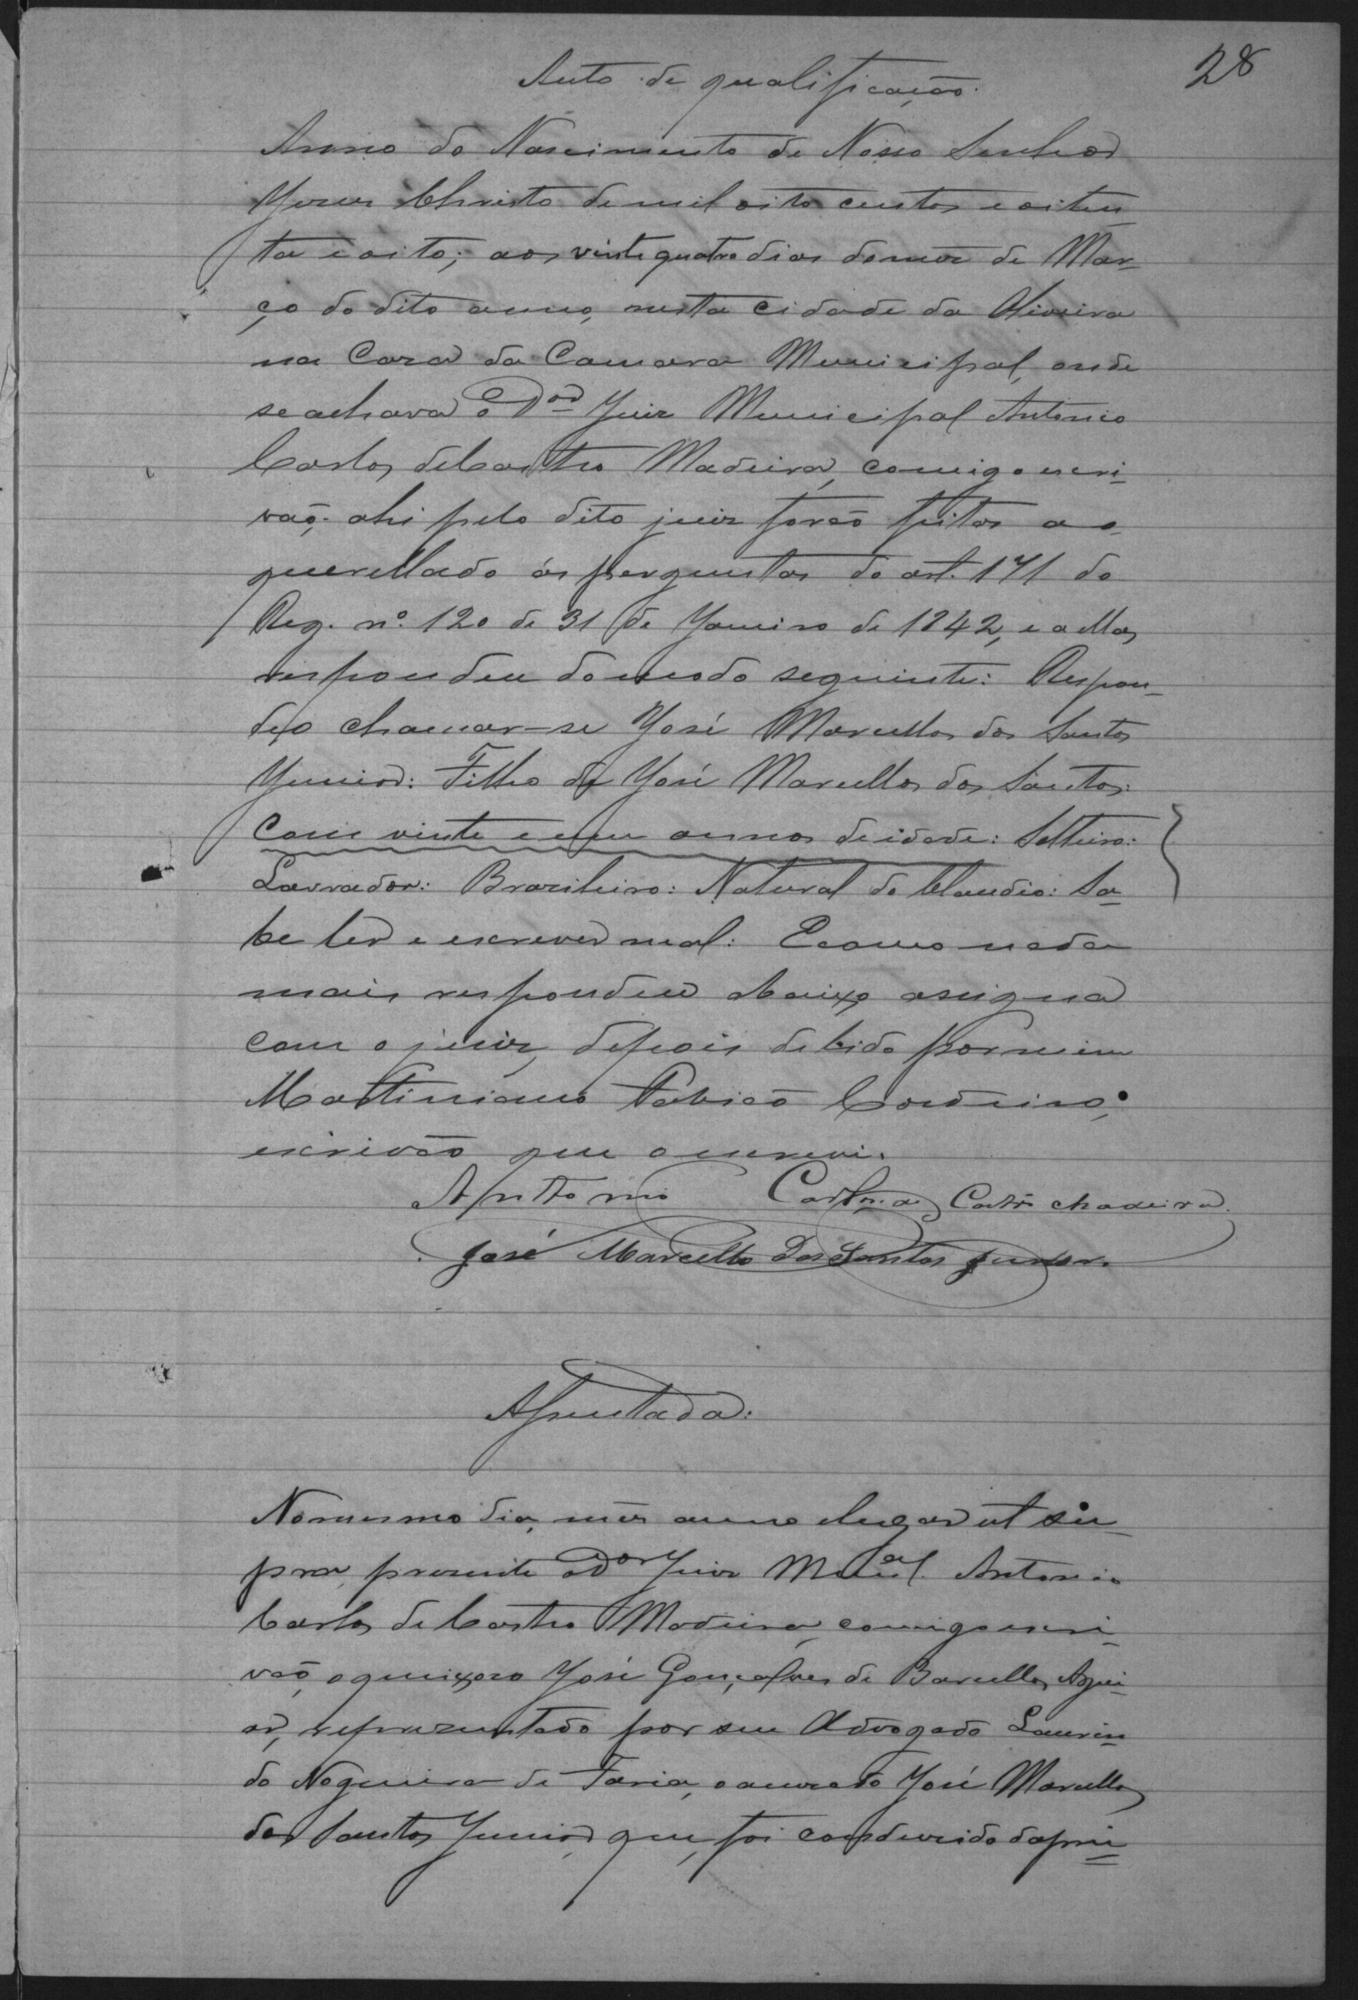 28
Auto de qualificação.
Anno do Nascimento de Nosso Senhor
Jesus Christo de mil oito centos e oiten-
ta e oito; aos vinte quatro dias do mez de Mar-
ço do dito anno, nesta cidade da Oliveira
na Caza da Camara Municipal, onde
se achava o Dor Juiz Municipal Antonio
Carlos de Castro Madeira, comigo escri-
vaõ; ahi pelo dito juiz foraõ feitas ao
querellado ás perguntas do art. 171 do
Reg. nº. 120 de 31 de Janeiro de 1842, e a ellas
respondeu do modo seguinte: Respon-
deo chamar-se José Marcellos dos Santos
Junior: Filho de José Marcellos dos Santos:
Com vinte e um annos de idade: Solteiro:
Lavrador: Brazileiro: Natural do Claudio: Sa-
be ler e escrever mal: E como nada
mais respondeu abaixo assigna
com o juiz, depois de lido por mim
Martiniano Fabiaõ Cordeiro,
escrivão que o escrevi.
Antonio Carlos de Castro Madeira.
José Marcello Dos Santos Junior.
Ajuntada:
No mesmo dia, mez anno e lugar ut su-
pra, presente o Dor Juiz Mcal. Antonio
Carlos de Castro Madeira, comigo escri-
vaõ, o queixozo José Gonçalves de Barcellos Agui-
ar, reprezentado por seu Advogado Laurin-
do Nogueira de Faria, o accuzado José Marcellos
dos Santos Junior, que, foi conduzido da pri-